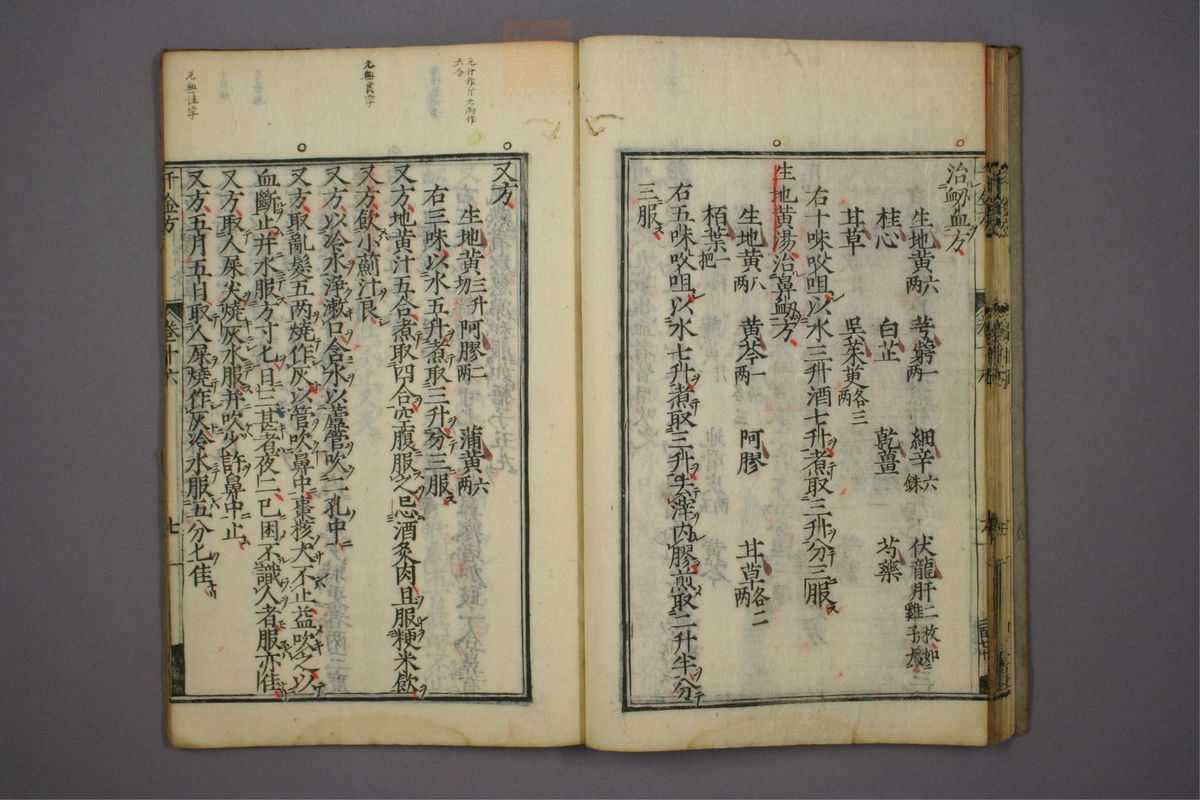 治衂血方
生地黄六两 芎藭一两 細辛六銖 伏龍肝二枚如雞子大
桂心 白芷 乾薑 芍藥
甘草 呉茱萸各三两
右十味㕮咀以水三升酒七升煮取三升分三服
生地黄湯治鼻衂方
生地黄八两 黄芩一两 阿膠 甘草各二两
栢葉一把
右五味㕮咀以水七升煮取三升去滓内膠煎取二升半分
三服
元升作斤大两作
六合
元無良字
元無佳字
又方
生地黄三升切 阿膠二两 蒲黄六两
右三味以水五升煮取三升分三服
又方地黄汁五合煮取四合空腹服之忌酒炙肉且服粳米飲
又方飲小薊汁良
又方以冷水淨漱口含水以蘆管吹二孔中
又方取亂髮五两燒作灰以管吹鼻中棗核大不止益吹之以
血斷止并水服方寸匕日三甚者夜二已困不識人者服亦佳
又方取人屎尖燒灰水服并吹少許鼻中止
又方五月五日取人屎燒作灰冷水服五分匕佳
千金方 卷十六 七